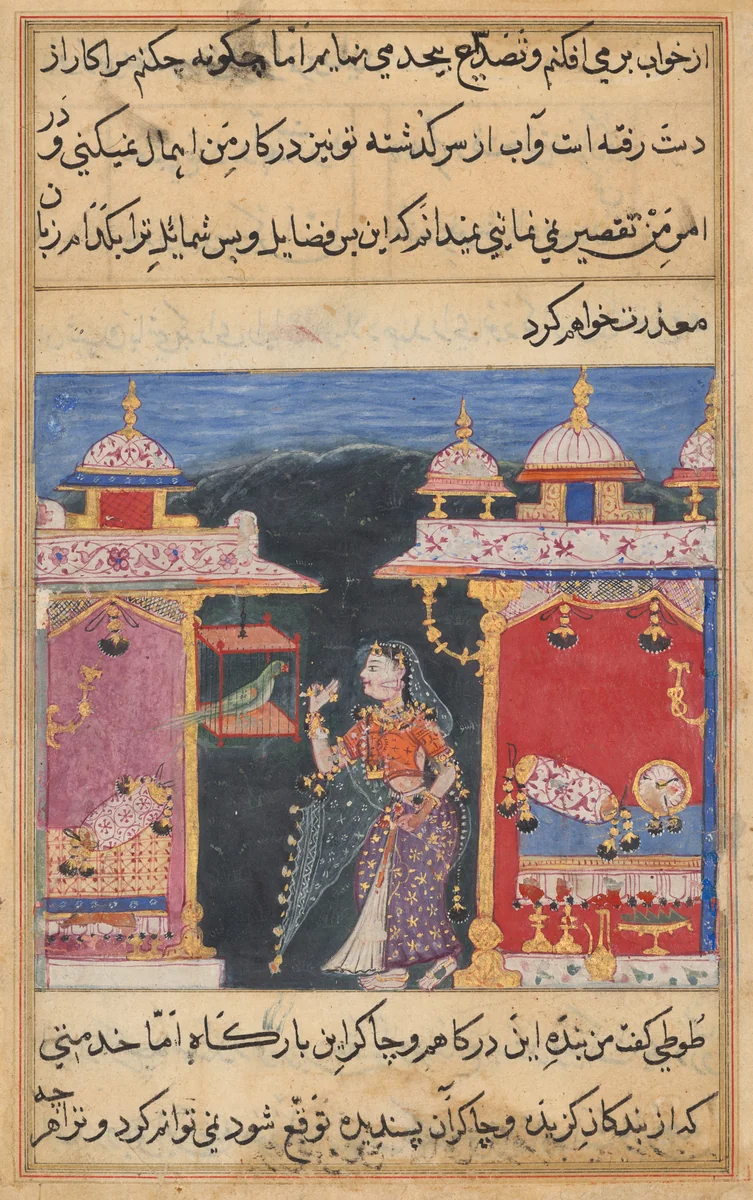 از خواب بر می افکنم و تصدیع بیحد می نمایم امّا چگونه چکنم مرا کار از
دست رفته است و آب از سر گذشته تو نیز در کار من اهمال نمیکنی و در
امر من تقصیر نمی نمائی نمیدانم که این بس فضایل و بس شمائل ترا بکدام زبان
معذرت خواهم کرد
طوطی گفت من بنده این درکاهم و چاکر این بارکاه امّا خدمتی
که از بندکان گزیده و چاکران پسندیده توقّع شود نمی توانم کرد و ترا هر چه